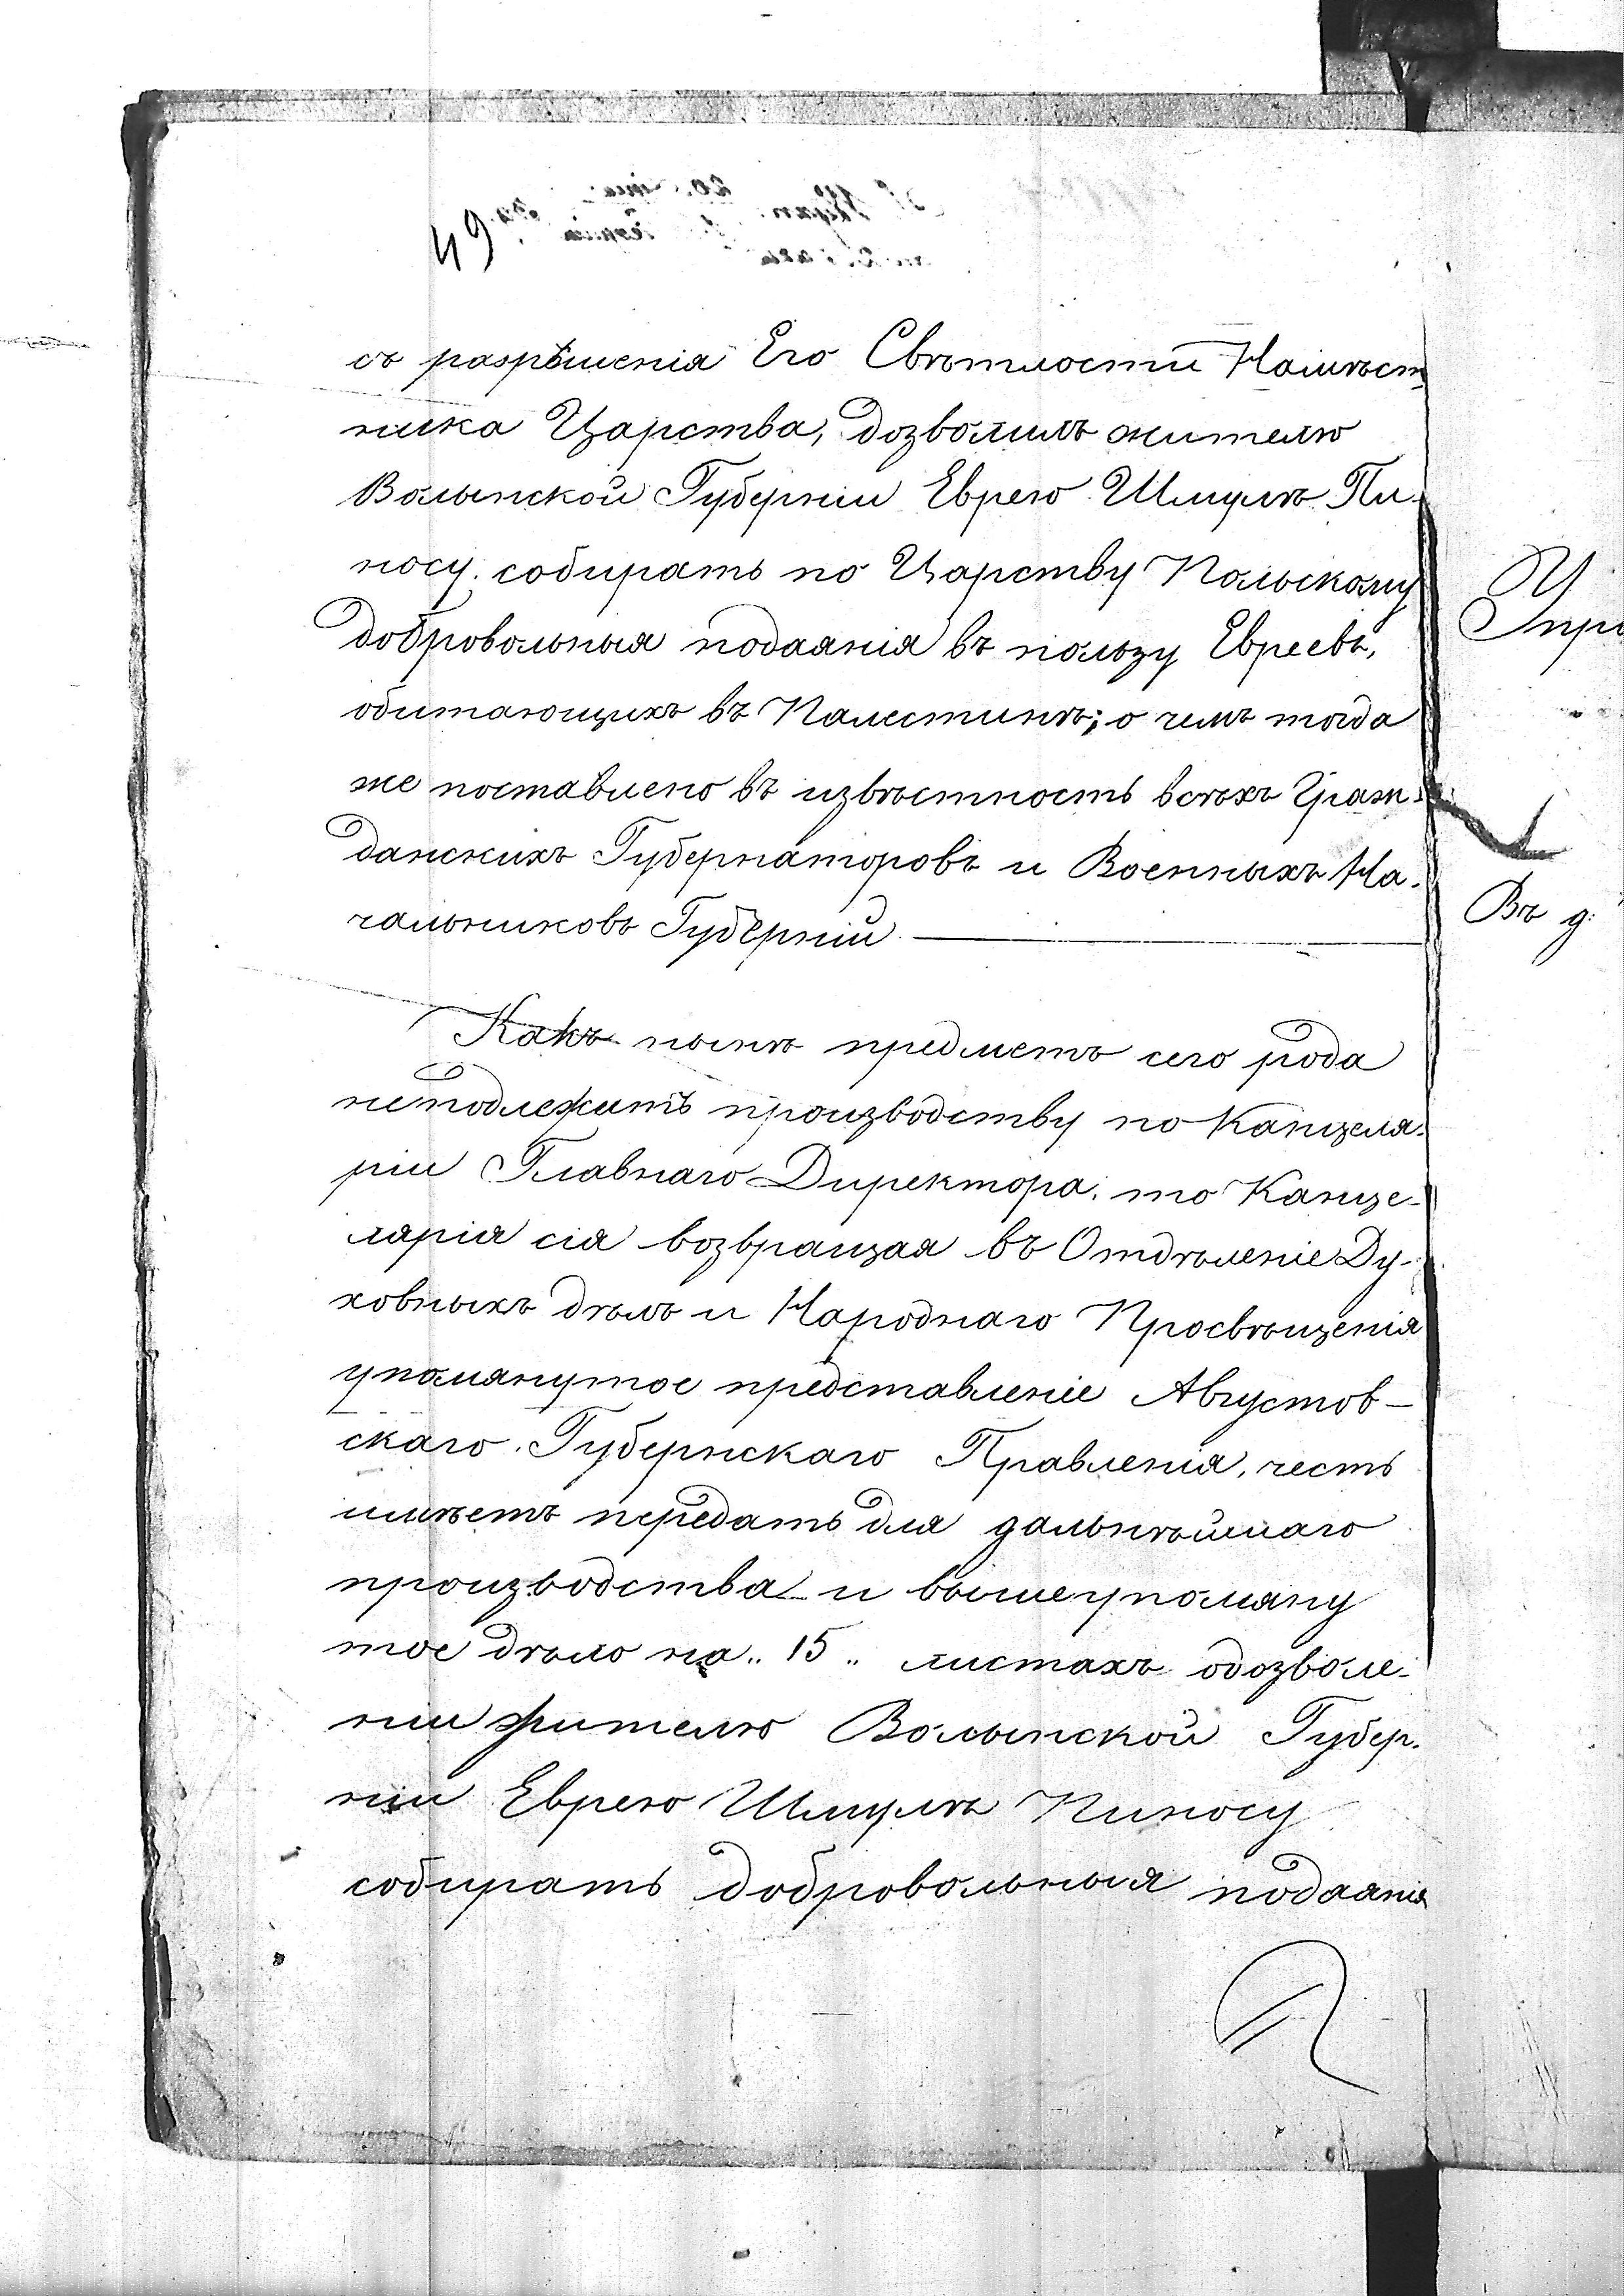 49
съ разрѣшенія Его Свѣтлости Намѣст
ника Царства, дозволилъ жителю
Волынской Губерніи Еврею Шмулѣ Пи-
носу собирать по Царству Польскому
добровольныя подаянія въ пользу Евреевъ,
обитающихъ въ Палестинѣ; о чемъ тогда
же поставлено въ извѣстность всѣхъ Граж-
данскихъ Губернаторовъ и Военныхъ На-
чальниковъ Губерній.
Какъ нынѣ предметъ сего рода
неподлежитъ производству по Канцеля-
ріи Главнаго Директора, то Канце-
лярія сія возвращая въ Отдѣленіе Ду-
ховныхъ дѣлъ и Народнаго Просвѣщенія
упомянутое представленіе Августов-
скаго Губернскаго Правленія, честь
имѣетъ передать для дальнѣйшаго
производства и вышеупомяну
тое дѣло на „ 15 „ листахъ одозволе-
ніи жителю Волынской Губер-
ніи Еврею Шмулѣ Пиносу
собирать добровольныя подаянія
Въ д